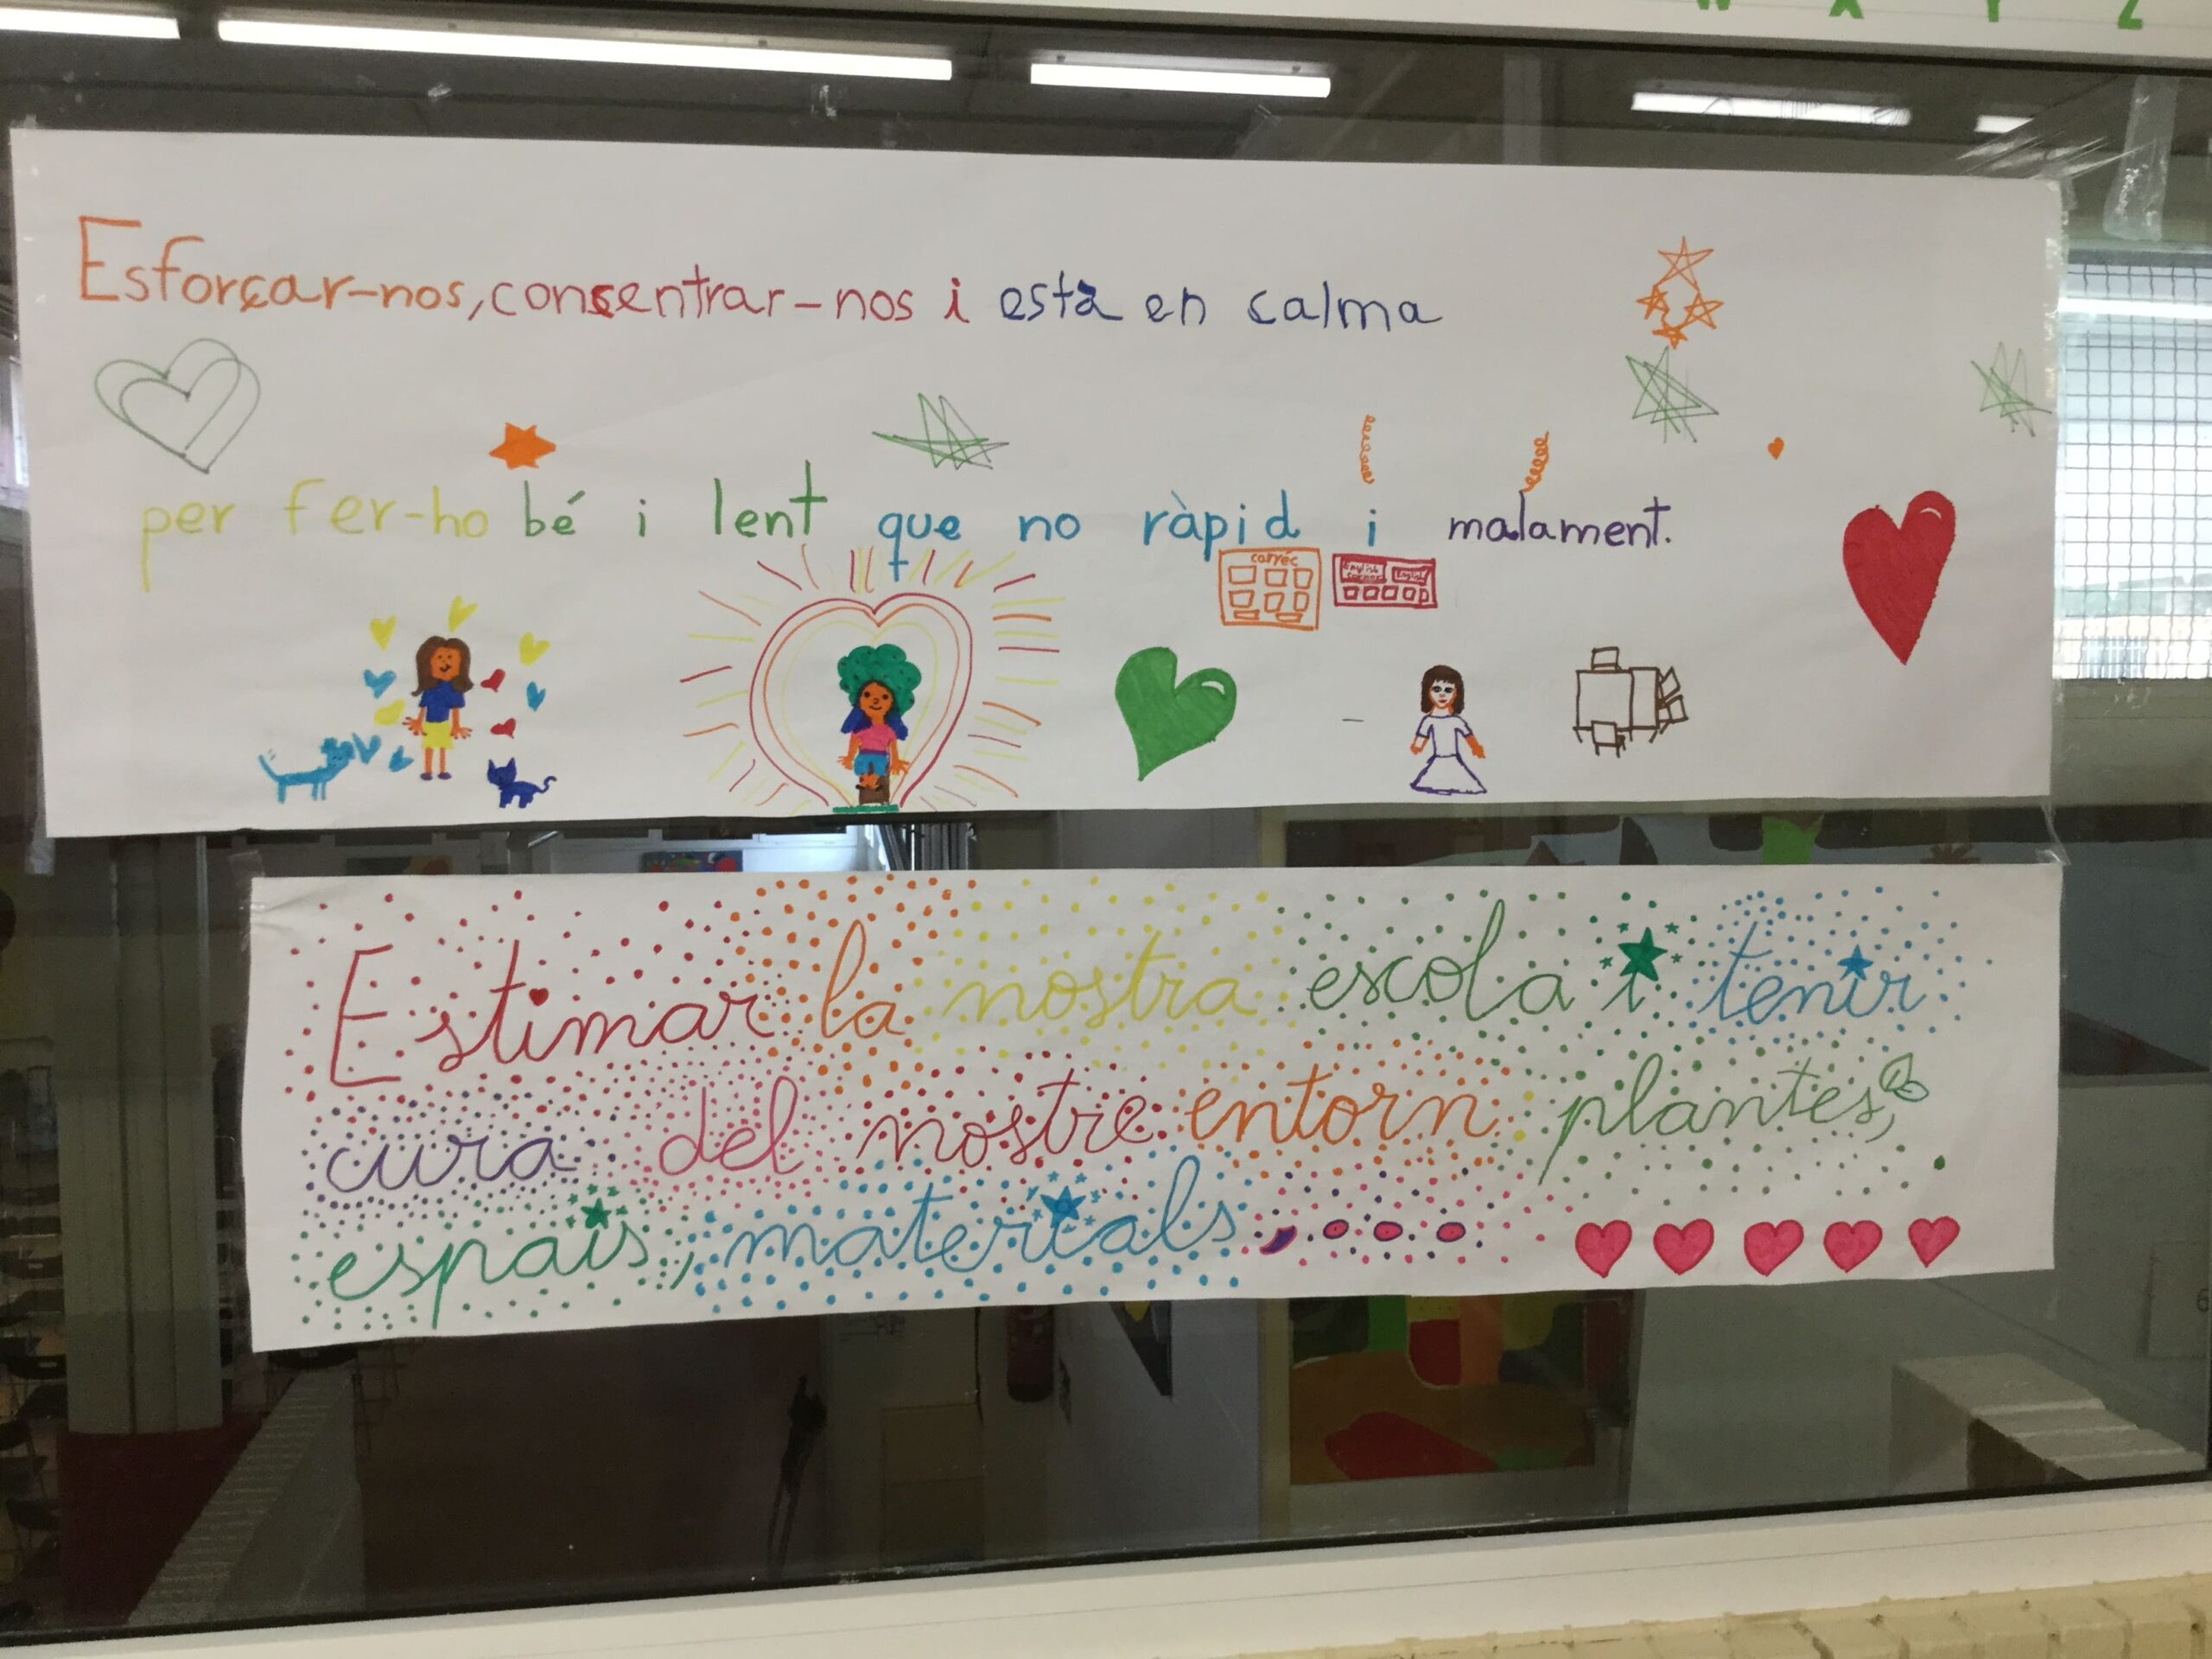 W X Y Z
Esforçar-nos, consentrar-nos i està en calma
per fer-ho bé i lent que no ràpid i malament.
carréc
English corner English
Estimar la nostra escola i tenir
cura del nostre entorn plantes,
espais, materials, ...